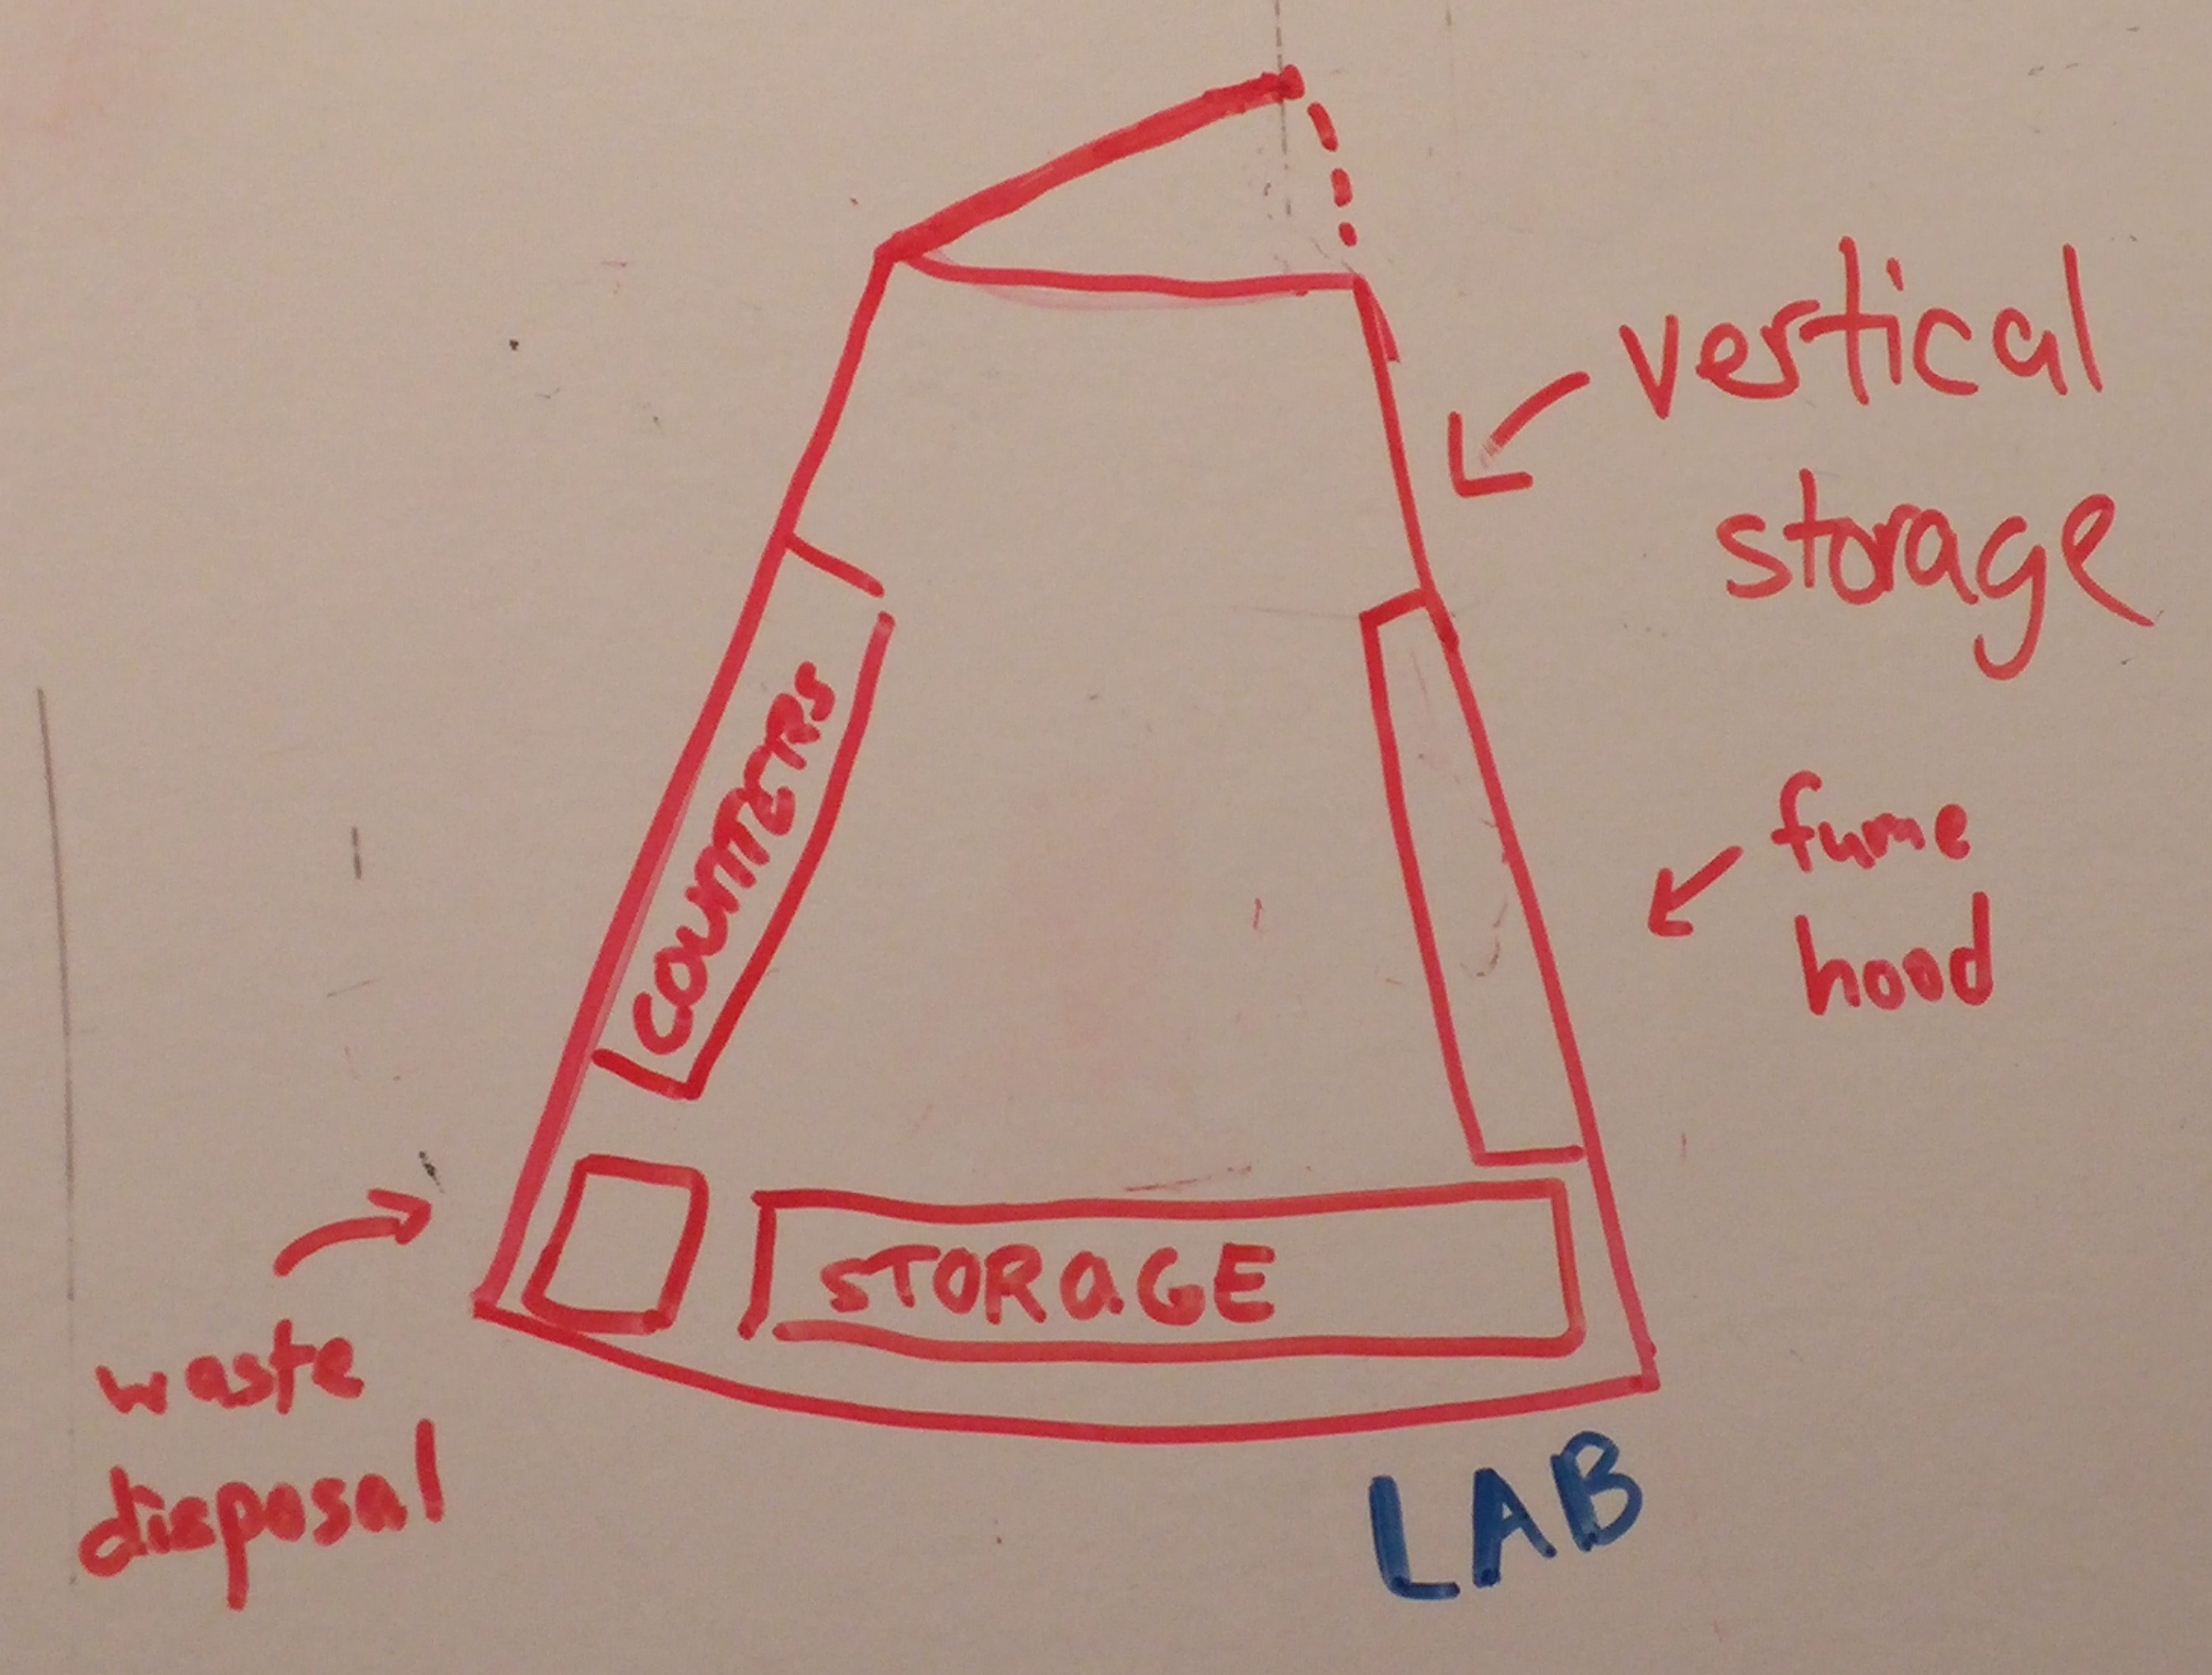 vertical
storage
COUNTERS
fume
hood
STORAGE
waste
disposal
LAB